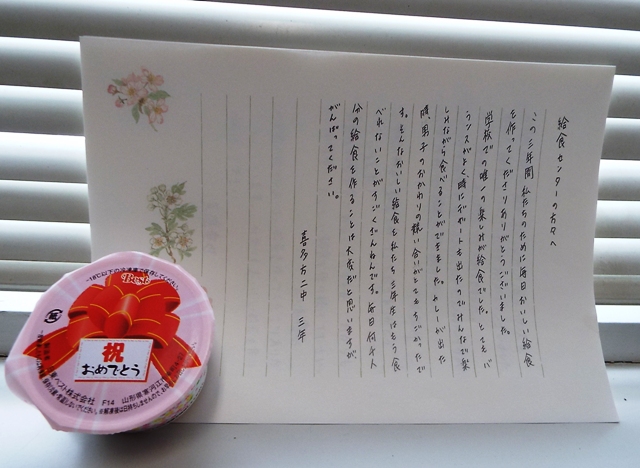 給食センターの方々へ
この三年間私たちのために毎日おいしい給食
を作ってくださりありがとうございました。
学校での唯一の楽しみが給食でした。とてもバ
ランスがよく時にデザートも出たのでみんなで楽
しみながら食べることができました。カレーが出た
時、男子のおかわりの競い合いがとてもすごかったで
す。そんなおいしい給食を私たち三年生はもう食
べれないことがすごくざんねんです。毎日何千人
分の給食を作ることは大変だと思いますが
がんばってください。
喜多方二中 三年
-18℃以下の冷凍庫で保存してください
Best
祝
おめでとう
ベスト株式会社 F14 山形県寒河江